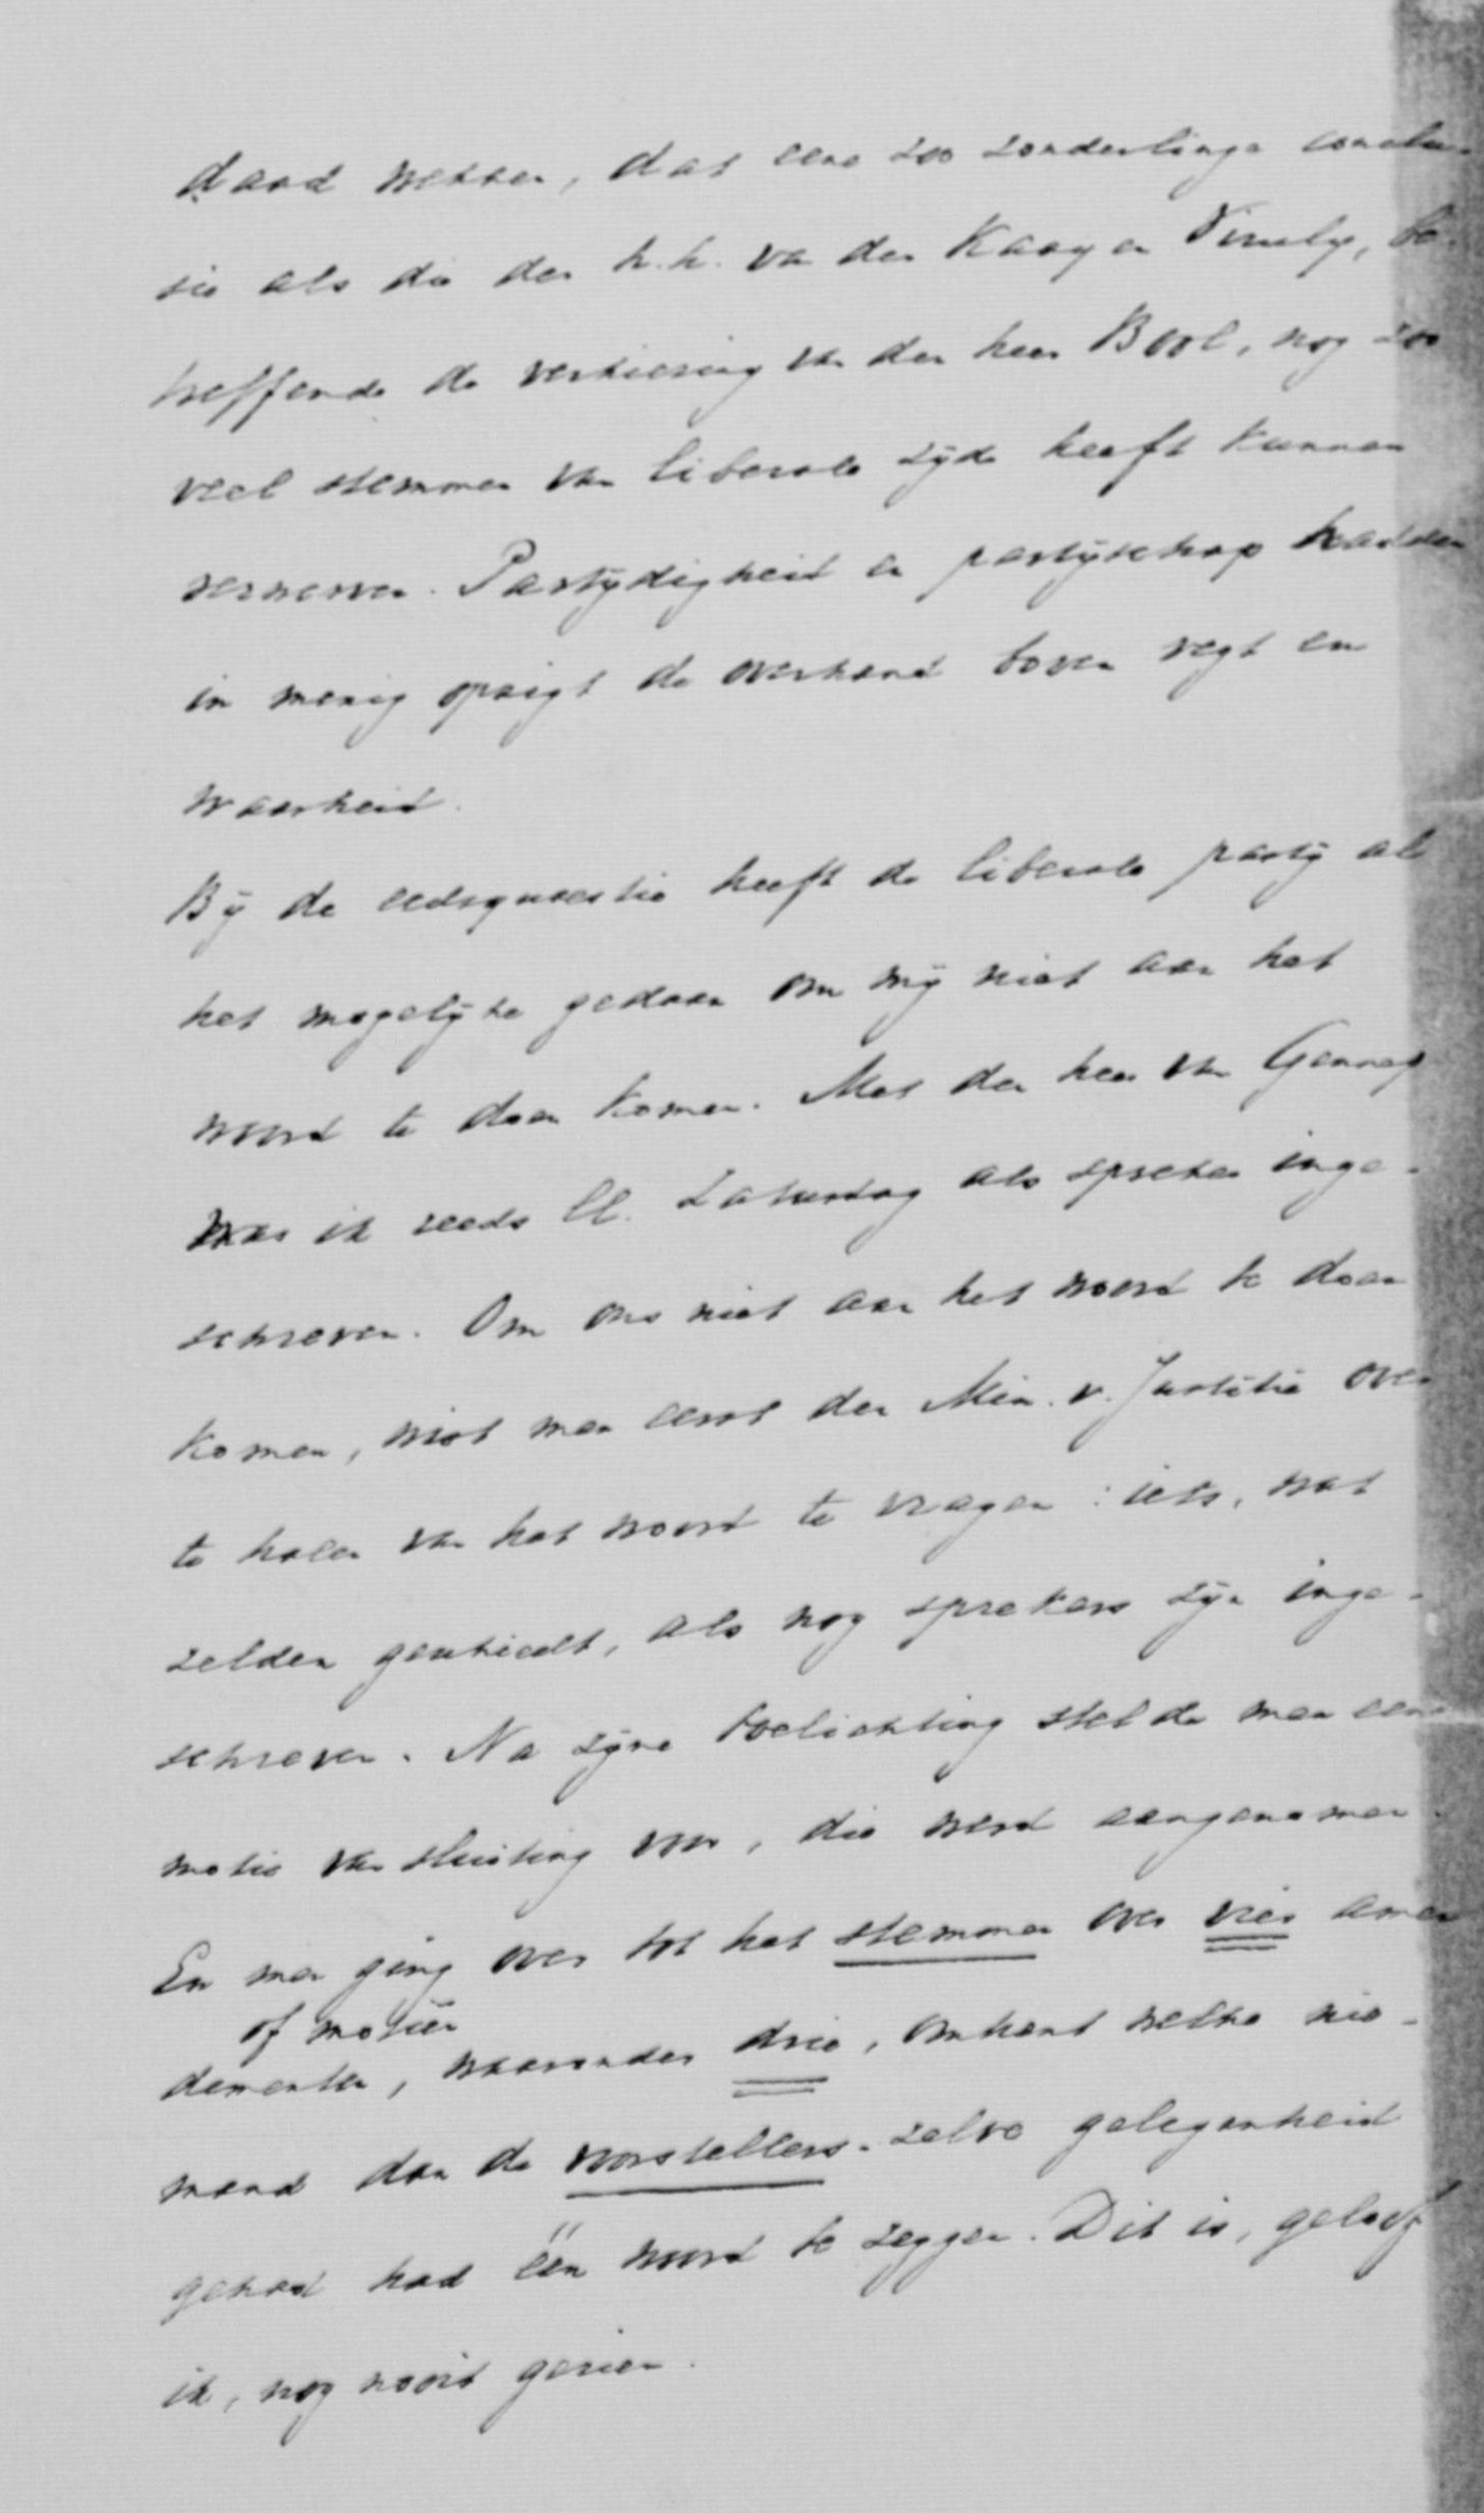 daad wekken, dat eene zoo zonderlinge conclu-
sie als die der h.h. van der Kaay en Viruly, be-
treffende de verkiezing van den heer Bool, nog zoo
veel stemmen van liberale zijde heeft kunnen
verwerven. Partijdigheid en partijschap hadden
in menig opzigt de overhand boven regt en
waarheid.
Bij de eedsquaestie heeft de liberale partij al
het mogelijke gedaan om mij niet aan het
woord te doen komen. Met den heer van Gennep
was ik reeds ll. Zaturdag als spreker inge-
schreven. Om ons niet aan het woord te doen
komen, wist men eerst den Min. v. Justitie over
te halen van het woord te vragen: iets, wat
zelden gebeurt, als nog sprekers zijn inge-
schreven. Na zijne toelichting stelde men eene
motie van sluiting voor, die werd aangenomen.
En men ging over tot het stemmen over vier amen
of motiën
dementen, waaronder drie, omtrent welke nie-
mand dan de voorstellers zelve gelegenheid
gehad had één woord te zeggen. Dit is, geloof
ik, nog nooit gezien.